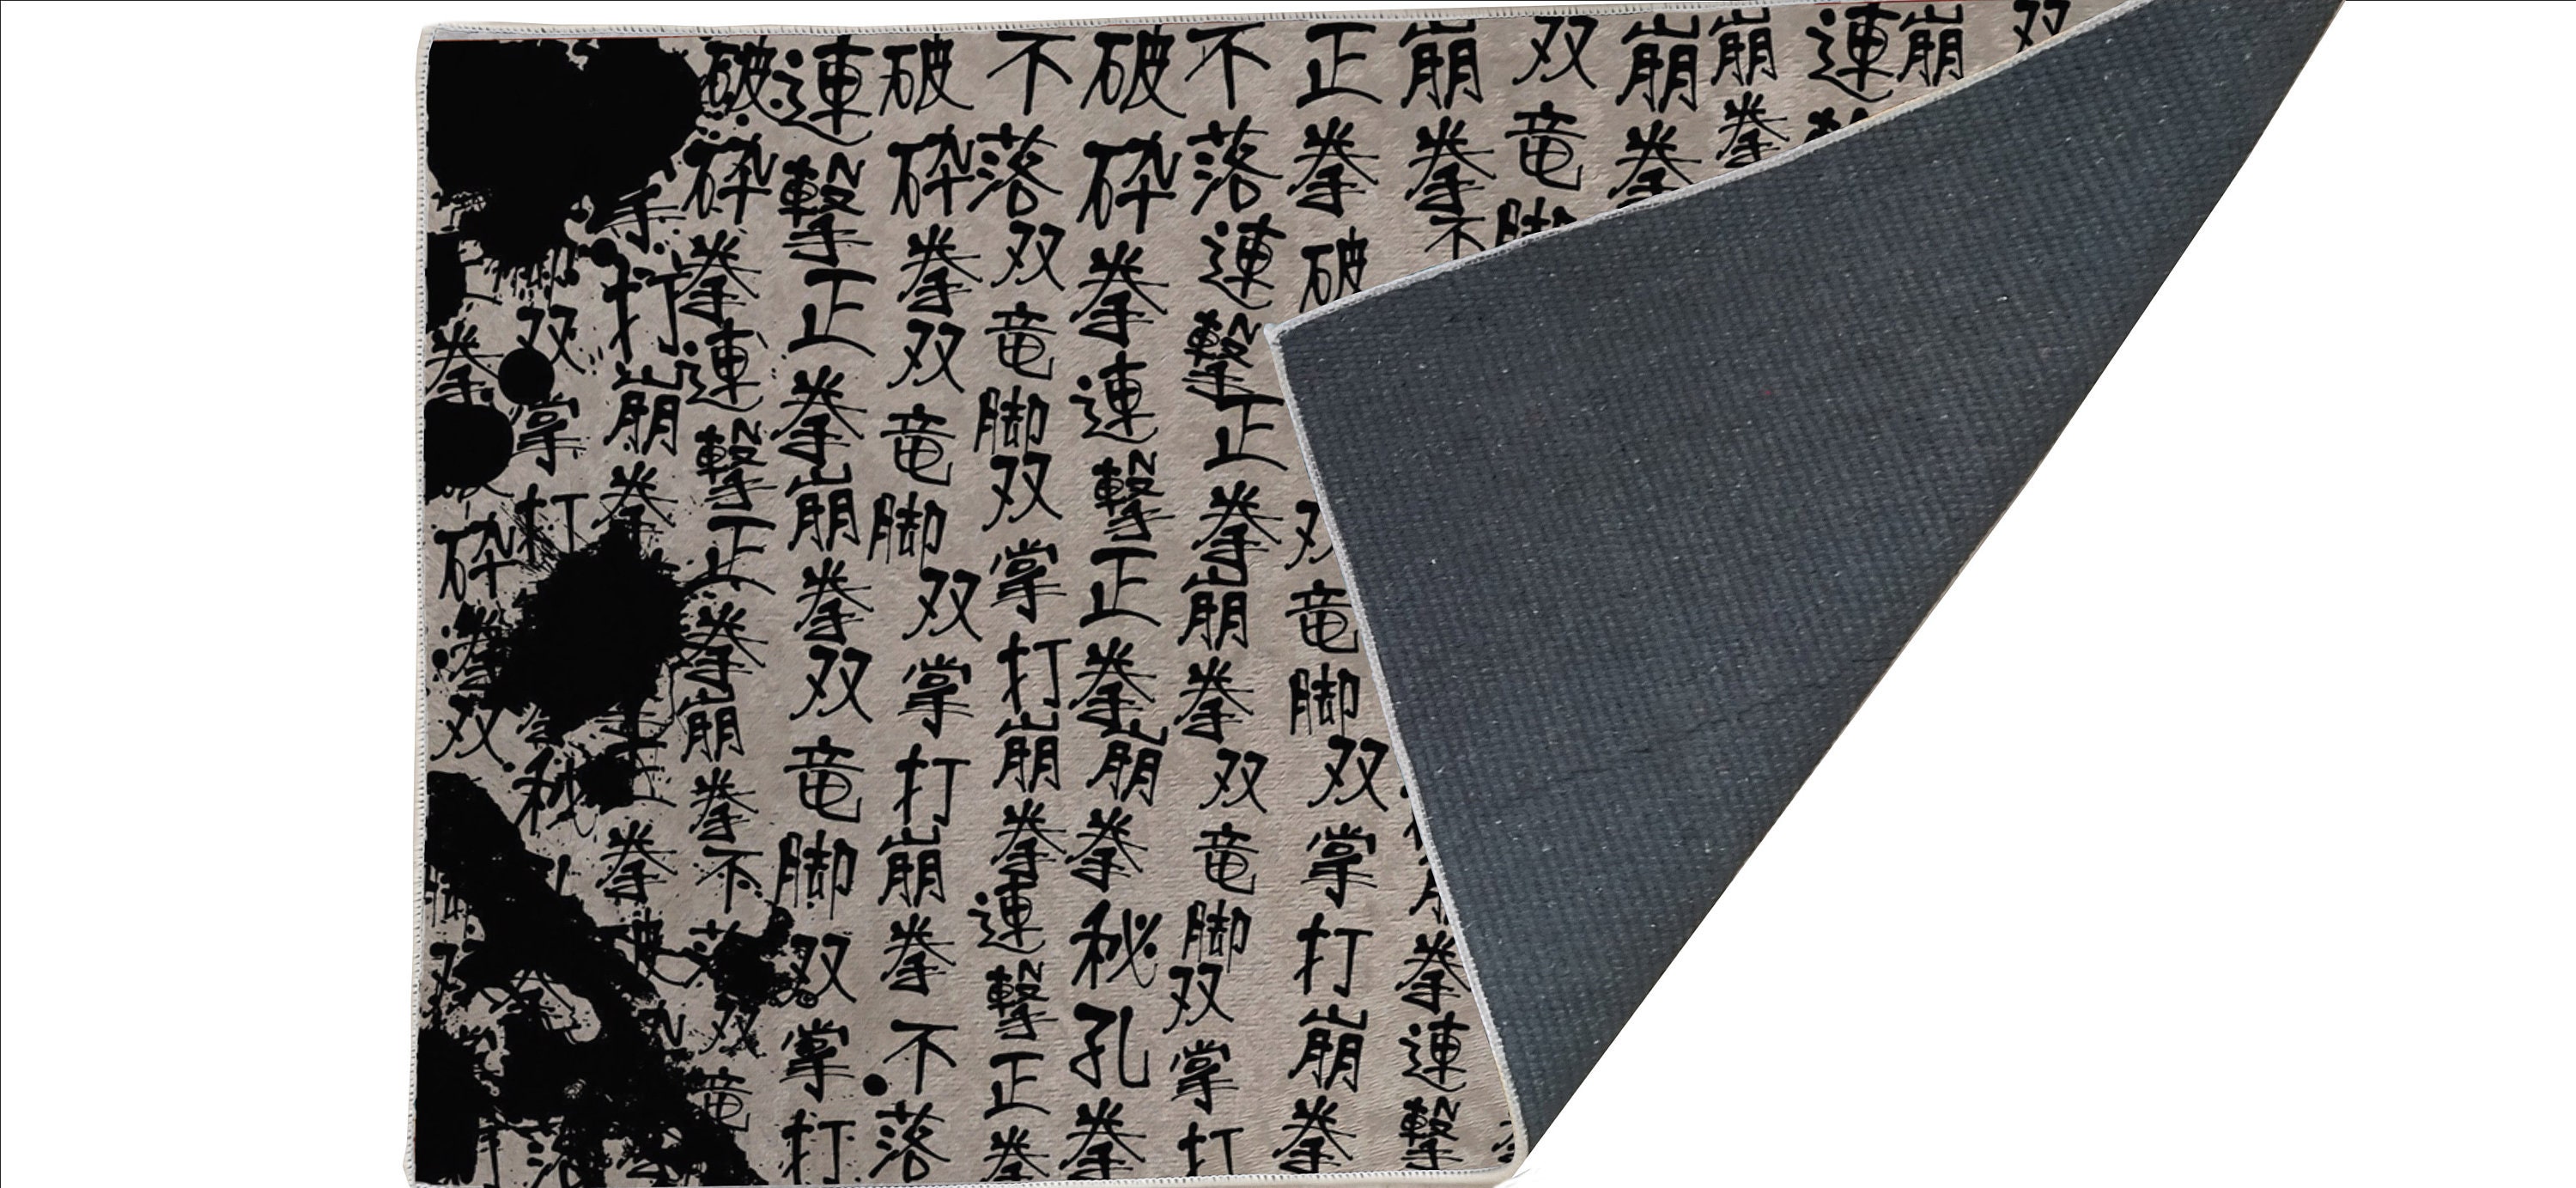 双
崩
連
崩拳
崩拳
双竜脚
崩拳不拳連撃
正拳破双竜脚双掌打崩拳
不落連撃正拳崩拳双竜脚双掌打
破砕拳連撃正拳崩拳秘孔拳
不落双竜脚双掌打崩拳連撃正拳
破砕拳双竜脚双掌打崩拳不落
連撃正拳崩拳双竜脚双掌打
破砕拳連撃正拳崩拳不落双竜
打崩拳拳破
双掌打秘
拳砕拳双双